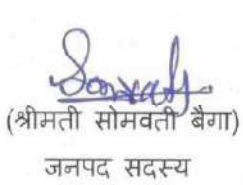 (श्रीमती सोमवती बैगा)
जनपद सदस्य